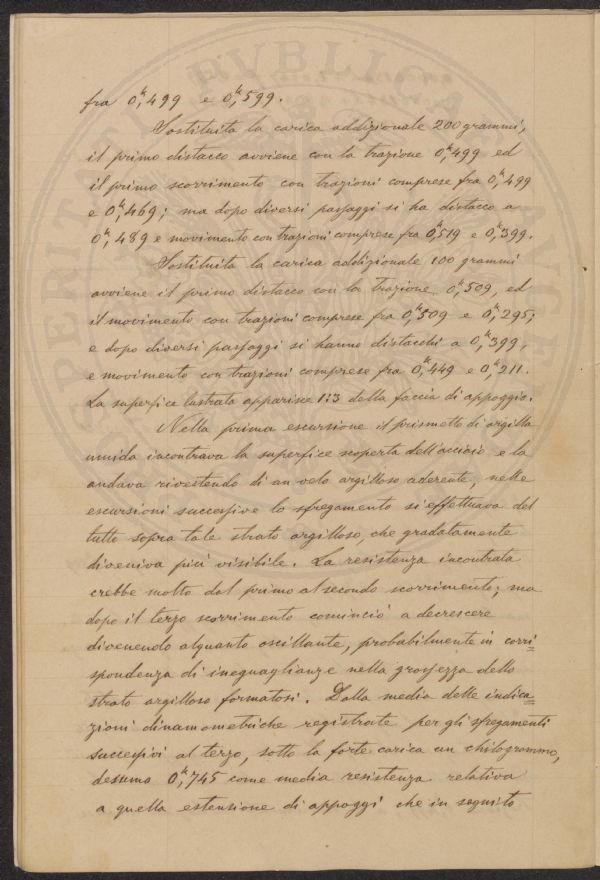 fra 0,ᵏ499 e 0,ᵏ599.
Sostituita la carica addizionale 200 grammi,
il primo distacco avviene con la trazione 0,ᵏ499 ed
il primo scorrimento con trazioni comprese fra 0,ᵏ499
e 0,ᵏ469; ma dopo diversi passaggi si ha distacco a
0,ᵏ489 e movimento con trazioni comprese fra 0,ᵏ519 e 0,ᵏ399.
Sostituita la carica addizionale 100 grammi
avviene il primo distacco con la trazione 0,ᵏ509, ed
il movimento con trazioni comprese fra 0,ᵏ509 e 0,ᵏ295;
e dopo diversi passaggi si hanno distacchi a 0,ᵏ399,
e movimento con trazioni comprese fra 0,ᵏ449 e 0,ᵏ211.
La superfice lustrata apparisce 1:3 della faccia di appoggio.
Nella prima escursione il prismetto di argilla
umida incontrava la superfice scoperta dell'acciaio e la
andava rivestendo di un velo argilloso aderente, nelle
escursioni successive lo sfregamento si effettuava del
tutto sopra tale strato argilloso, che gradatamente
diveniva più visibile. La resistenza incontrata
crebbe molto dal primo al secondo scorrimento; ma
dopo il terzo scorrimento cominciò a decrescere
divenendo alquanto oscillante, probabilmente in corri=
spondenza di ineguaglianze nella grossezza dello
strato argilloso formatosi. Dalla media delle indica=
zioni dinamometriche registrate per gli sfregamenti
successivi al terzo, sotto la forte carica un chilogrammo,
desumo 0,ᵏ745 come media resistenza relativa
a quella estensione di appoggi che in seguito